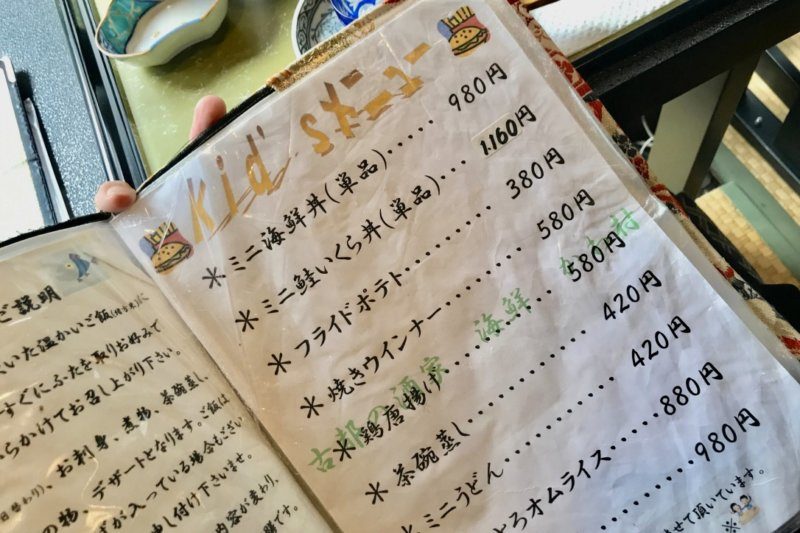 ご説明
いた温かいご飯
すぐにふたを取りお好みで
らかけてお召し上がり下さい。
日替わり)、お刺身、煮物、茶碗蒸し、
の物、デザートとなります。ご飯は
ずが入っている場合もござい
し付け下さいませ。
内容が変わり、
Kid'sメニュー
＊ミニ海鮮丼(単品)‥‥‥980円
＊ミニ鮭いくら丼(単品)‥‥‥1,160円
＊フライドポテト‥‥‥380円
＊焼きウインナー‥‥‥580円
＊鶏唐揚げ‥‥‥580円
＊茶碗蒸し‥‥‥420円
＊ミニうどん‥‥‥420円
とろオムライス‥‥‥880円
980円
せて頂いています。
古都の酒家 海鮮 村